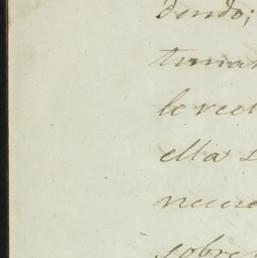 dendo;
tuma
le rect
ella s
neces
sobre